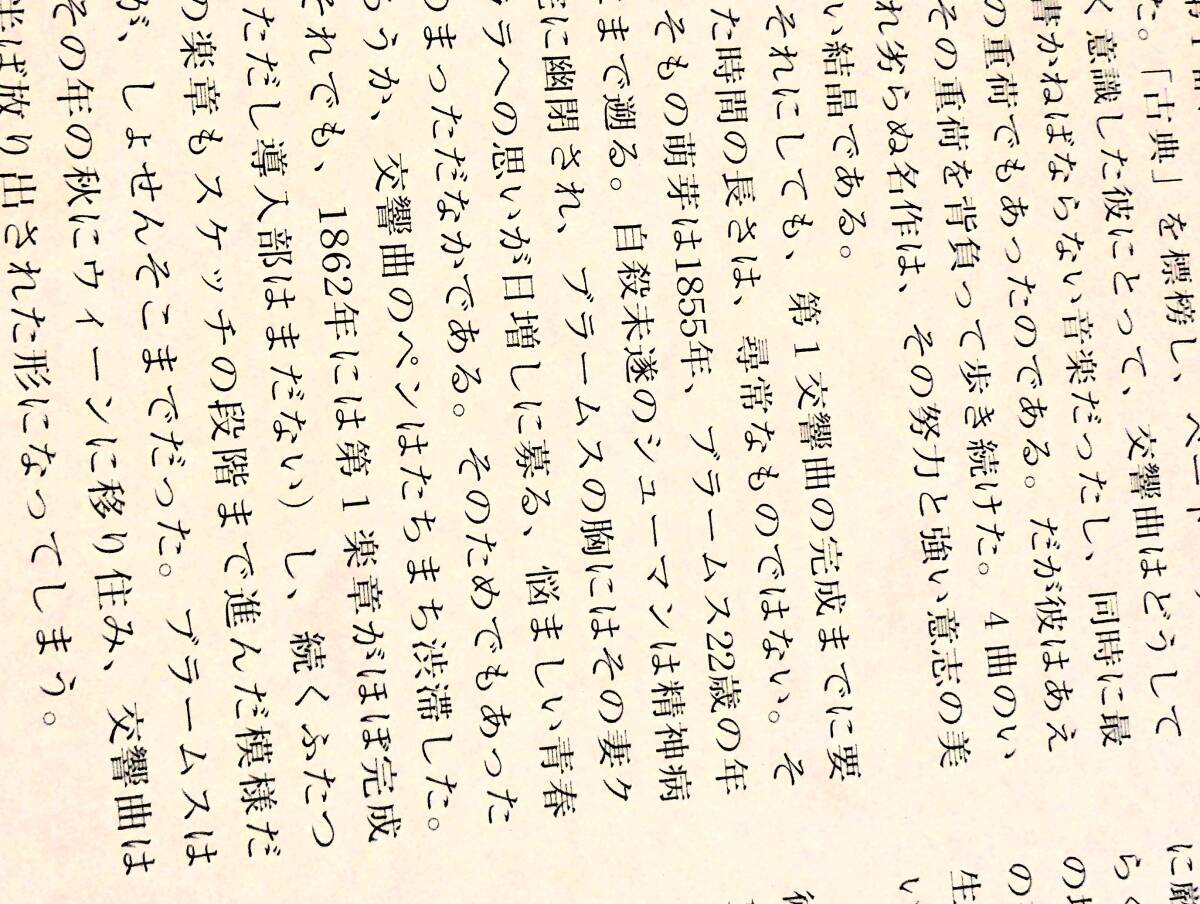 た。「古典」を標榜し、ベート
く意識した彼にとって、交響曲はどうして
書かねばならない音楽だったし、同時に最
の重荷でもあったのである。だが彼はあえ
その重荷を背負って歩き続けた。4曲のい
れ劣らぬ名作は、その努力と強い意志の美
い結晶である。
それにしても、第1交響曲の完成までに要
た時間の長さは、尋常なものではない。そ
そもの萌芽は1855年、ブラームス22歳の年
まで遡る。自殺未遂のシューマンは精神病
に幽閉され、ブラームスの胸にはその妻ク
ラへの思いが日増しに募る、悩ましい青春
つまっただなかである。そのためでもあった
ろうか、交響曲のペンはたちまち渋滞した。
それでも、1862年には第1楽章がほぼ完成
ただし導入部はまだない）し、続くふたつ
の楽章もスケッチの段階まで進んだ模様だ
が、しょせんそこまでだった。ブラームスは
その年の秋にウィーンに移り住み、交響曲は
半ば放り出された形になってしまう。
に厳
らく
の
生
い